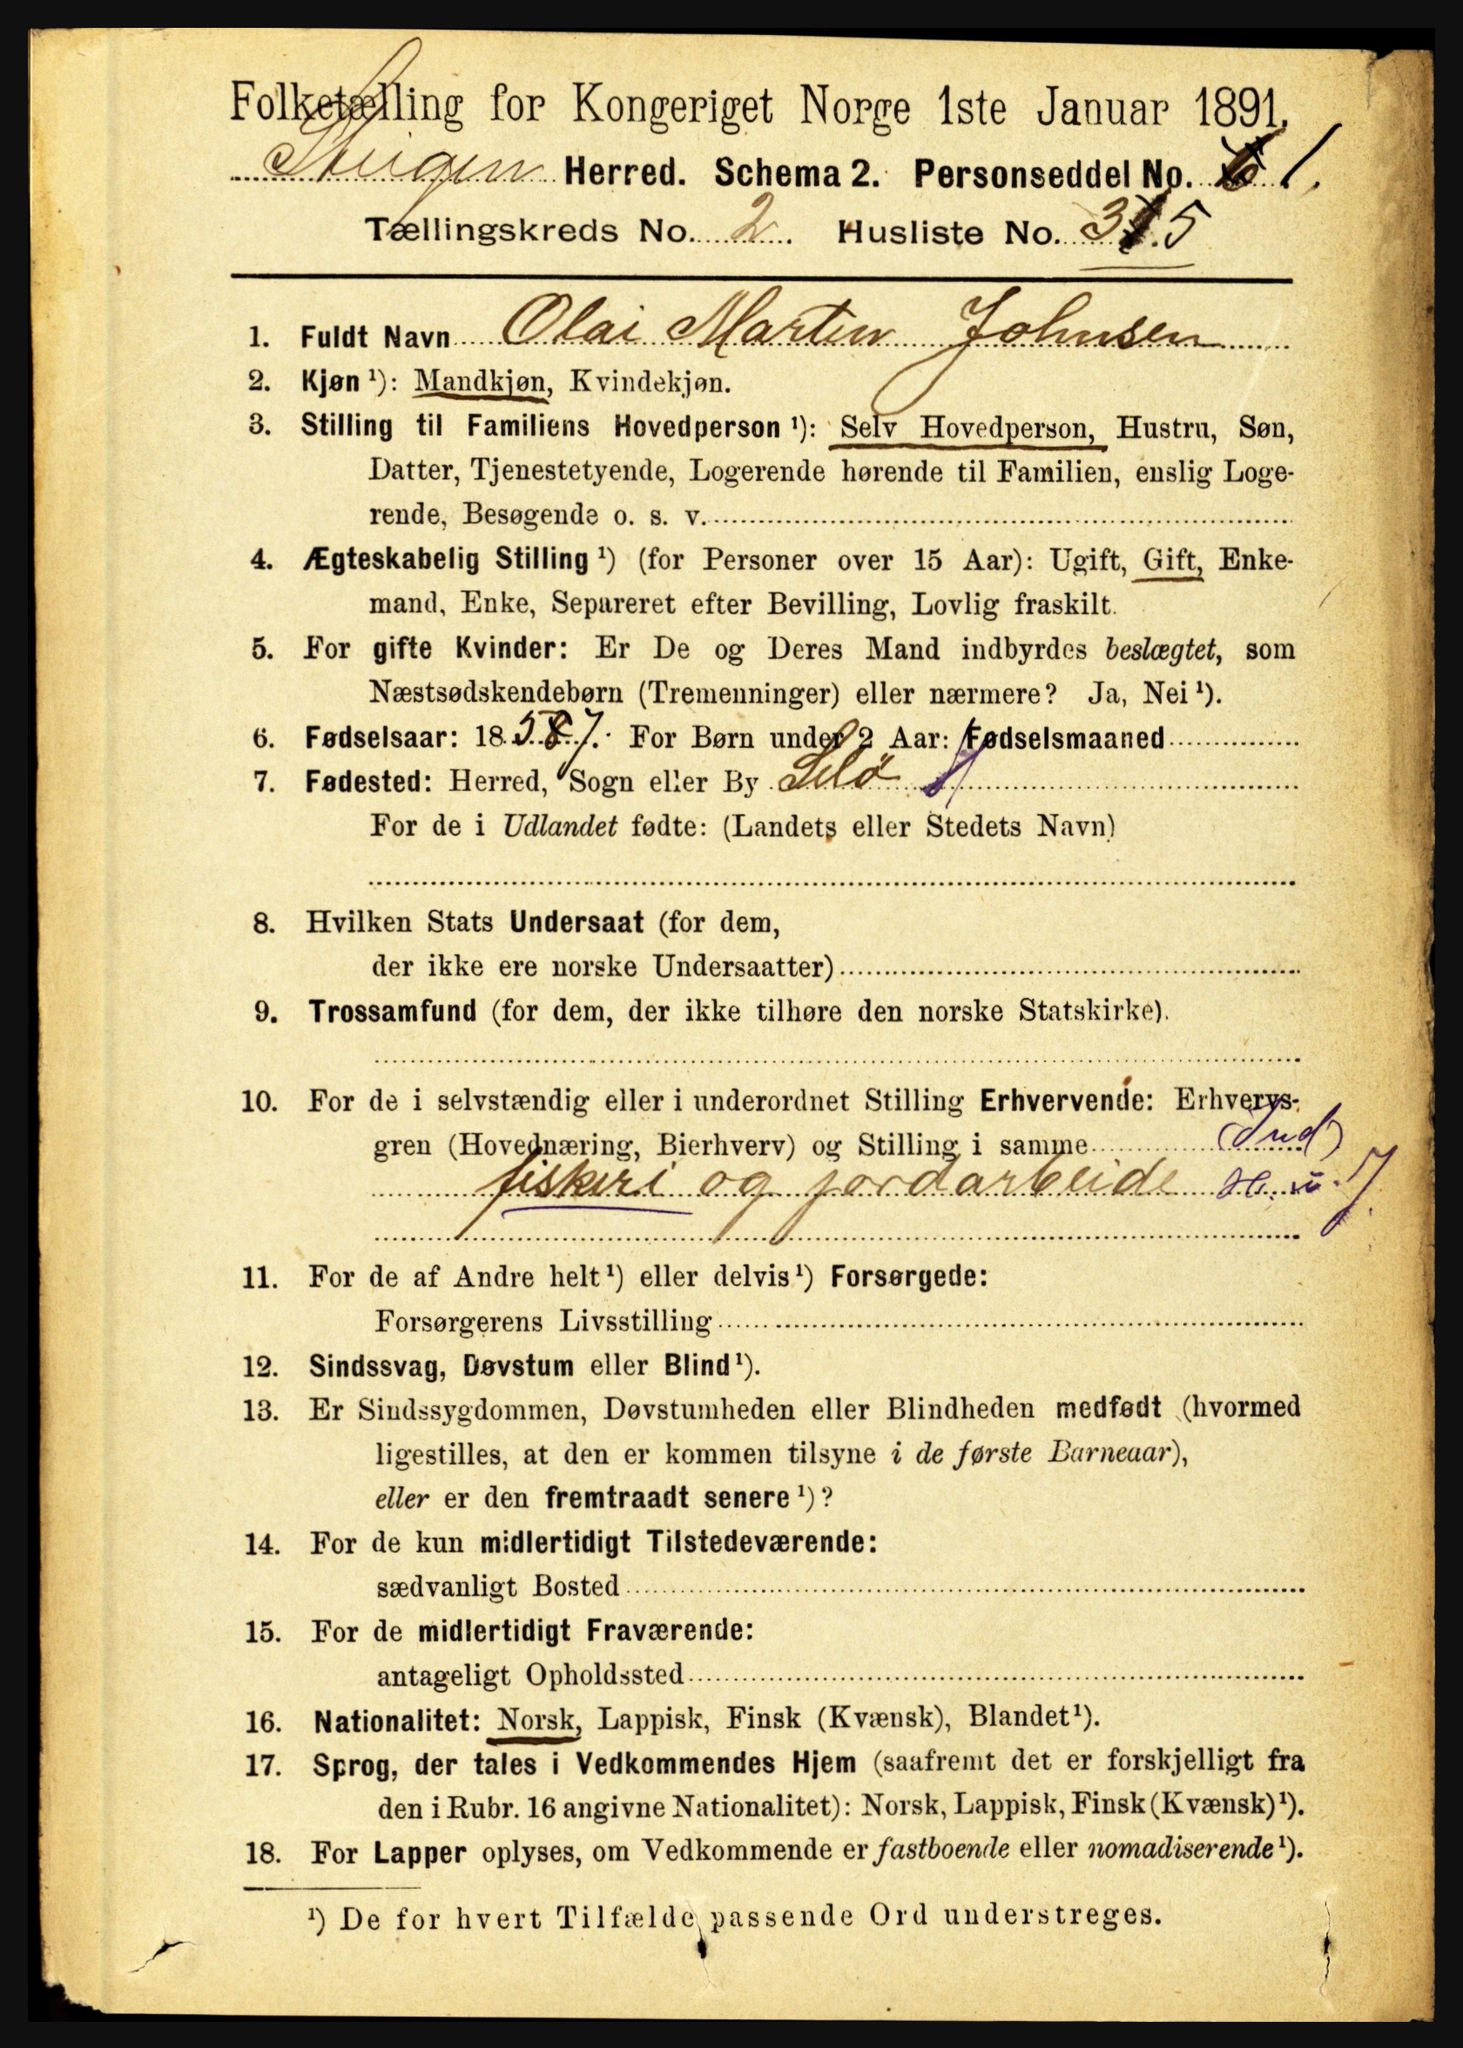 Folketælling for Kongeriget Norge 1ste Januar 1891.
Steigen Herred. Schema 2. Personseddel No. 1.
Tællingskreds No. 2. Husliste No. 35
1. Fuldt Navn Olai Martin Johnsen
2. Kjøn ¹): Mandkjøn, Kvindekjøn.
3. Stilling til Familiens Hovedperson ¹): Selv Hovedperson, Hustru, Søn,
Datter, Tjenestetyende, Logerende hørende til Familien, enslig Loge-
rende, Besøgende o. s. v.
4. Ægteskabelig Stilling ¹) (for Personer over 15 Aar): Ugift, Gift, Enke-
mand, Enke, Separeret efter Bevilling, Lovlig fraskilt.
5. For gifte Kvinder: Er De og Deres Mand indbyrdes beslægtet, som
Næstsødskendebørn (Tremenninger) eller nærmere? Ja, Nei ¹).
6. Fødselsaar: 1857. For Børn under 2 Aar: Fødselsmaaned
7. Fødested: Herred, Sogn eller By Selø
For de i Udlandet fødte: (Landets eller Stedets Navn)
8. Hvilken Stats Undersaat (for dem,
der ikke ere norske Undersaatter)
9. Trossamfund (for dem, der ikke tilhøre den norske Statskirke).
10. For de i selvstændig eller i underordnet Stilling Erhvervende: Erhvervs-
gren (Hovednæring, Bierhverv) og Stilling i samme (Ind)
fiskeri og jordarbeide
11. For de af Andre helt ¹) eller delvis ¹) Forsørgede:
Forsørgerens Livsstilling
12. Sindssvag, Døvstum eller Blind ¹).
13. Er Sindssygdommen, Døvstumheden eller Blindheden medfødt (hvormed
ligestilles, at den er kommen tilsyne i de første Barneaar),
eller er den fremtraadt senere ¹)?
14. For de kun midlertidigt Tilstedeværende:
sædvanligt Bosted
15. For de midlertidigt Fraværende:
antageligt Opholdssted
16. Nationalitet: Norsk, Lappisk, Finsk (Kvænsk), Blandet ¹).
17. Sprog, der tales i Vedkommendes Hjem (saafremt det er forskjelligt fra
den i Rubr. 16 angivne Nationalitet): Norsk, Lappisk, Finsk (Kvænsk) ¹).
18. For Lapper oplyses, om Vedkommende er fastboende eller nomadiserende ¹).
¹) De for hvert Tilfælde passende Ord understreges.